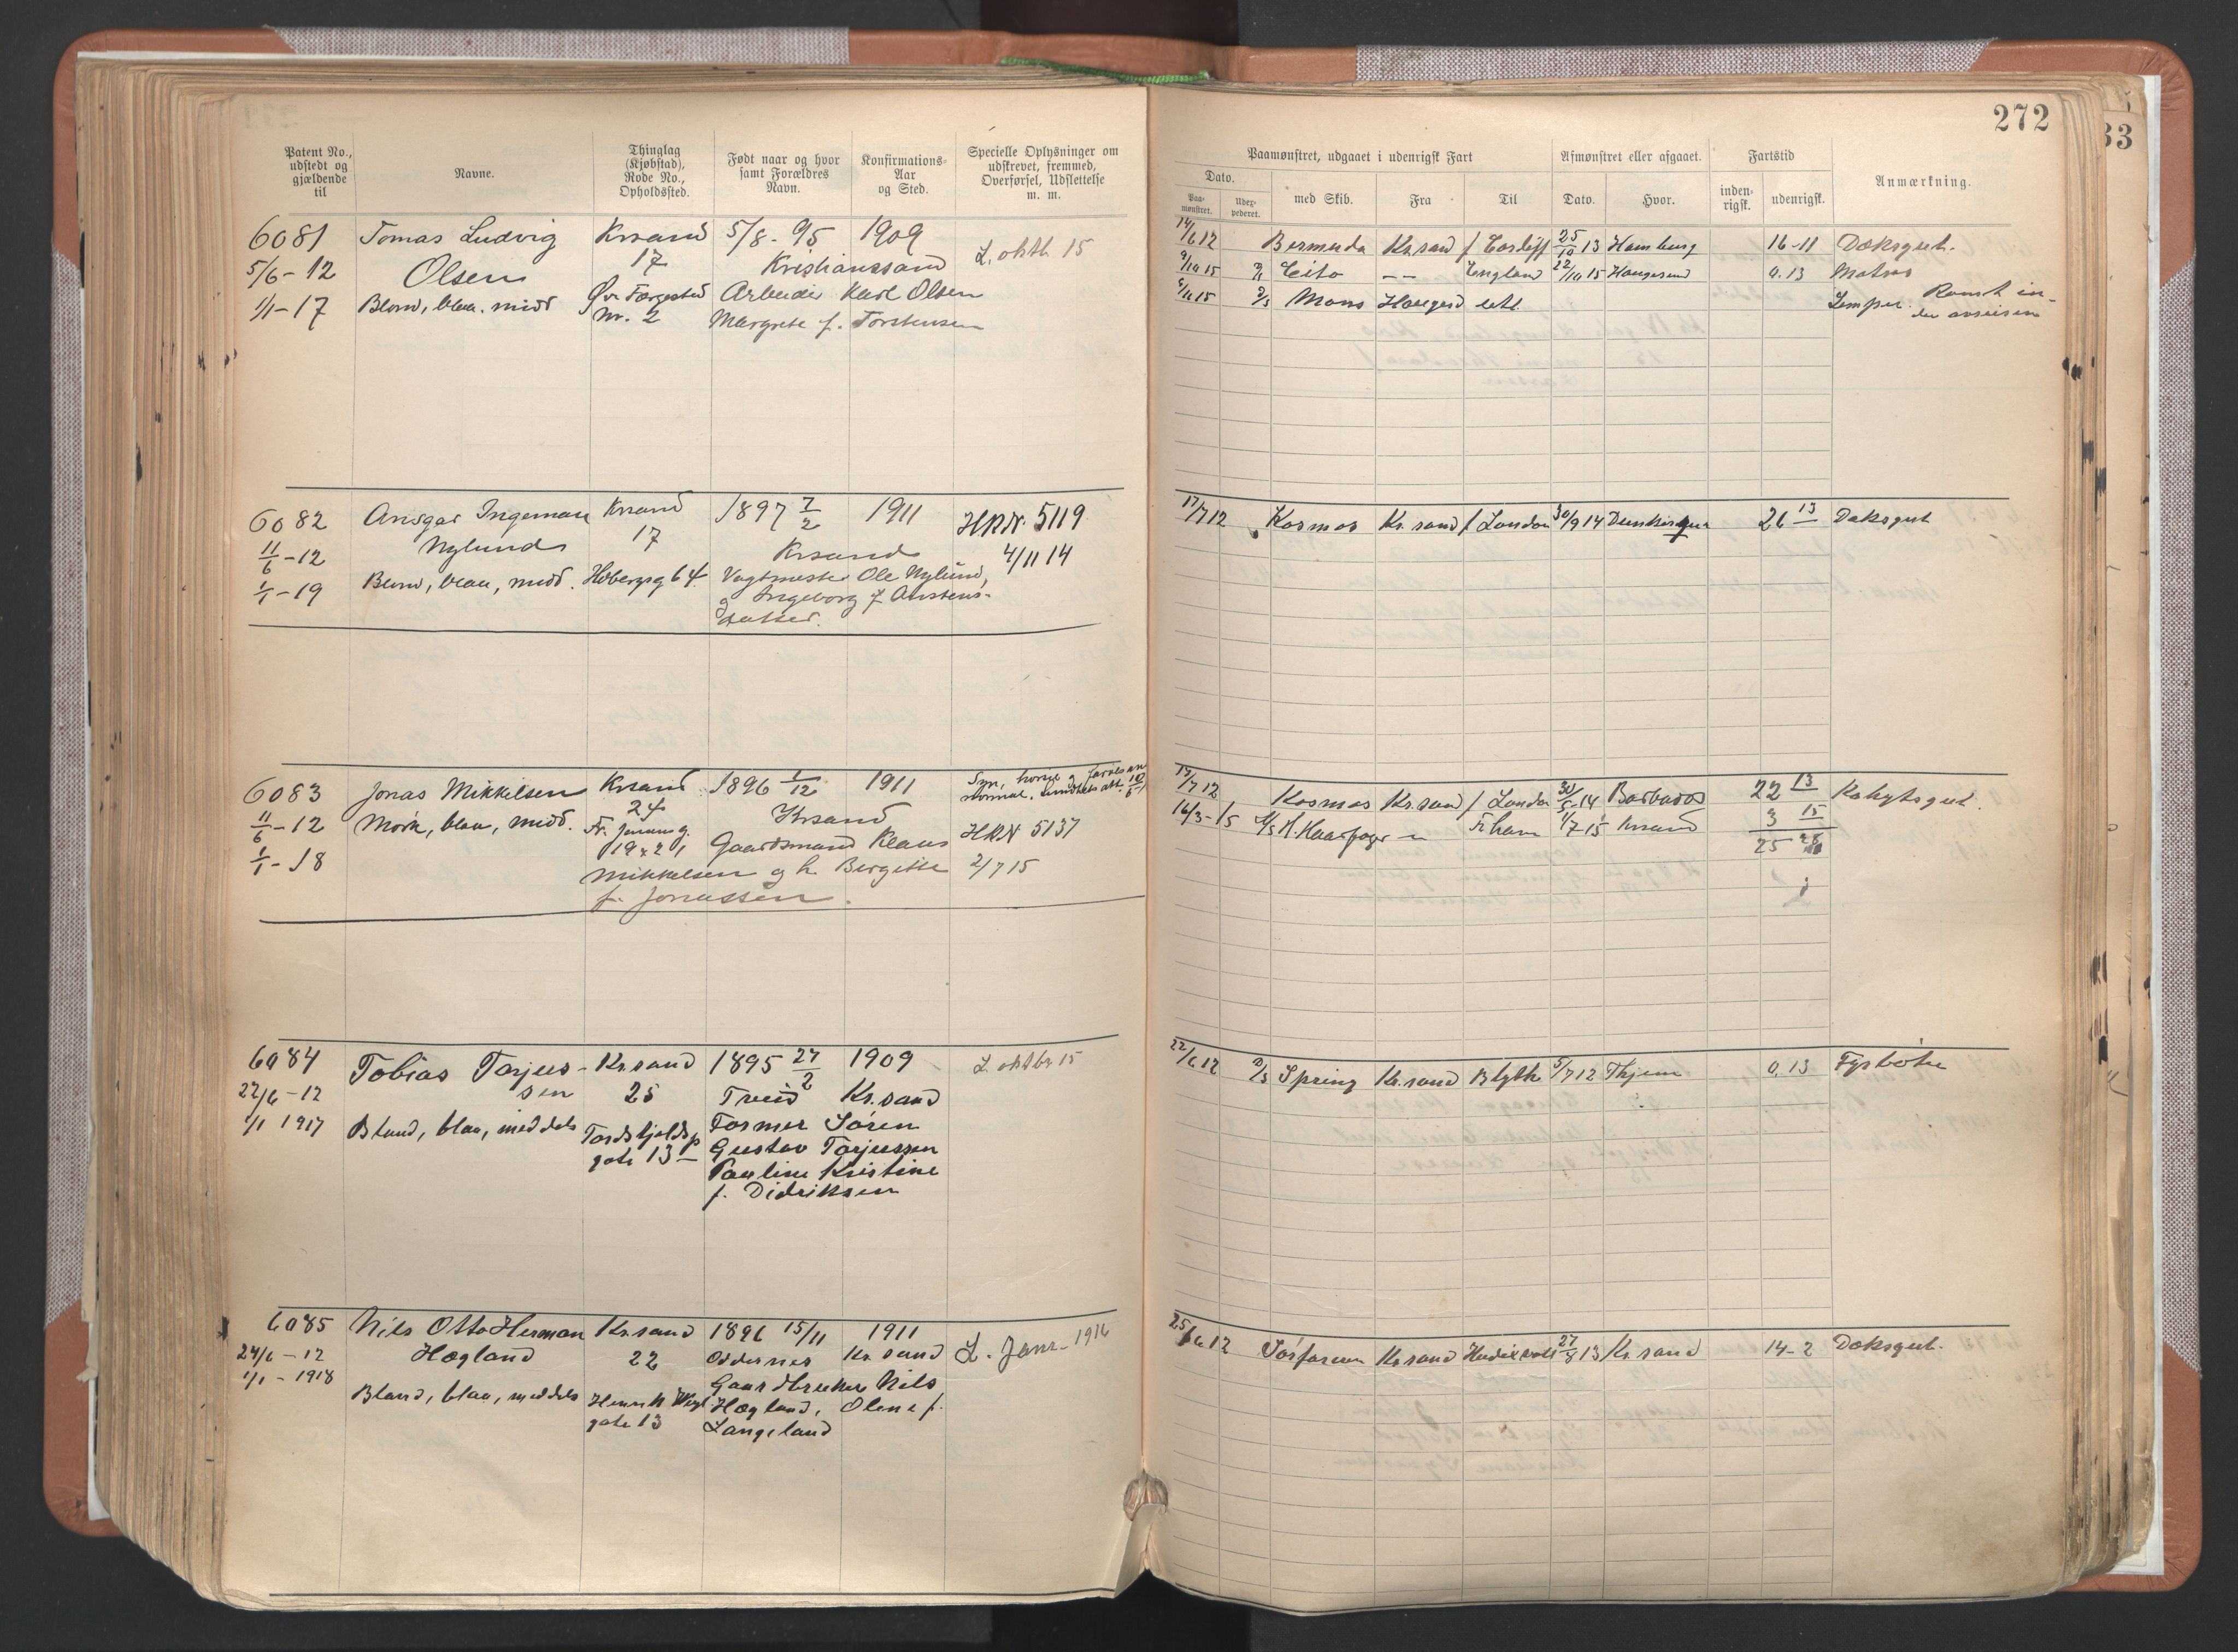 272
33
Patent No., udstedt og gjældende til
Navne.
Thinglag (Kjøbstad), Rode No., Opholdssted.
Født naar og hvor samt Forældres Navn.
Konfirmations-Aar og Sted.
Specielle Oplysninger om udskrevet, fremmed, Overførsel, Udslettelse m. m.
Paamønstret, udgaaet i udenrigsk Fart
Afmønstret eller afgaaet.
Fartstid
Anmærkning.
Dato.
Paa-mønstret.
Udex-pederet.
med Skib.
Fra
Til
Dato.
Hvor.
inden-rigsk.
udenrigsk.
6081 Tomas Ludvig Krsand 5/8-95 1909
5/6-12 Olsen 17 Kristianssand L. oktb. 15
1/1-17 Blond, blaa, midd Øv. Færgested Arbeider Karl Olsen
Nr. 2 Margrete f. Torstensen
14/6 12 Bermuda Kr.sand / Cardiff 25/10 13 Hamburg 16-11 Dæksgut.
9/10 15 Cito -- England 22/10 15 Haugesund 0.13 Matros
Mons Haugesd Lemper. Rømt in-
den avreisen
6082 Ansgar Ingeman Krsand 1897 7/2 1911 HRN. 5119
11/6-12 Nylund 17 Krsand 4/11 14
1/1-19 Blond, blaa, midd. Holbergsg 64 Vagtmester Ole Nylund,
og Ingeborg f. Austens-
datter.
17/7 12 Kosmos Kr.sand / London 30/9 14 Dunkirque 26 13 Dæksgut
6083 Jonas Mikkelsen Krsand 1896 1/12 1911 Syn, hørsel og farvesans
normal.
11/6-12 Mørk, blaa, midd. 24 Krsand HRN 5137
1/1-18 19 x 21 Gaardsmand Klaus
Mikkelsen og h. Bergitte 2/7 15
f. Jonassen.
17/7 12 Kosmos Kr.sand / London 30/5-14 Barbados 22 13 Kahytsgut.
16/3-15 H. Haarfagr 1/7-15 Krsand 3 15
25 28
6084 Tobias Torjus- Kr.sand 1895 27/2 1909 L. oktbr 15
22/6-12 sen 25 Treid Kr.sand
1/1 1917 Bland, blaa, middels Tordskjolds Farmer Søren
gate 13 Gustav Torjussen
Pauline Kristine
f. Didriksen
22/6 12 Spring Kr.sand Blyth 5/7 12 Thjem 0.13 Fyrbøter
6085 Nils Otto Herman Kr.sand 1896 15/11 1911
24/6-12 Hægland 22 Oddernes Kr.sand L. Janr. 1916
1/1-1918 Bland, blaa, middels Henrik Wergl. Gaardbruker Nils
gate 13 Hægland, Olene f.
Langeland
25/6 12 Sørfareren Kr.sand Hudiksvall 27/8 13 Kr.sand 14-2 Dæksgut.